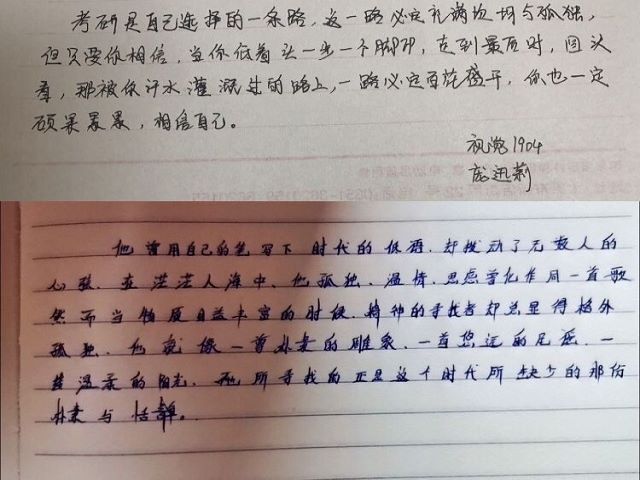 考研是自己选择的一条路，这一路必定充满坎坷与孤独，
但只要你相信，当你低着头一步一个脚印，走到最后时，回头
看，那被你汗水灌溉过的路上，一路必定百花盛开，你也一定
硕果累累，相信自己。
视觉1904
庞迅莉
他曾用自己的笔写下时代的低语，却拨动了无数人的
心弦，在茫茫人海中，他孤独、温情、思虑学化作同一首歌
然而当物质日益丰富的时候，精神的寻找者却总显得格外
孤独，他就像一尊朴素的雕象，一首悠远的尼谣，一
楚温柔的阳光，而他所寻找的正是这个时代所缺少的那份
朴素与恬静。